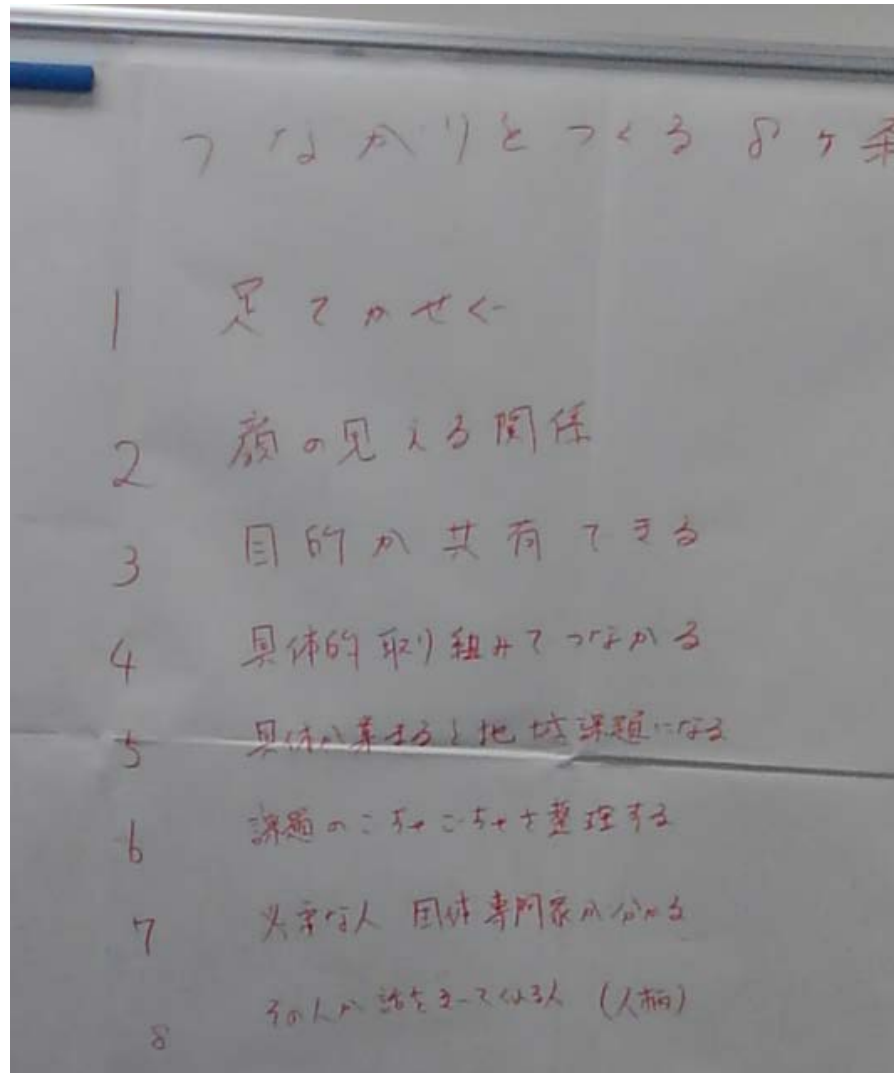 つながりをつくる8ヶ条
1 足でかせぐ
2 顔の見える関係
3 目的が共有できる
4 具体的取り組みでつながる
5 具体が集まると地域課題になる
6 課題のごちゃごちゃを整理する
7 必要な人 団体専門家が分かる
8 その人が話をきいてくれる人 (人柄)